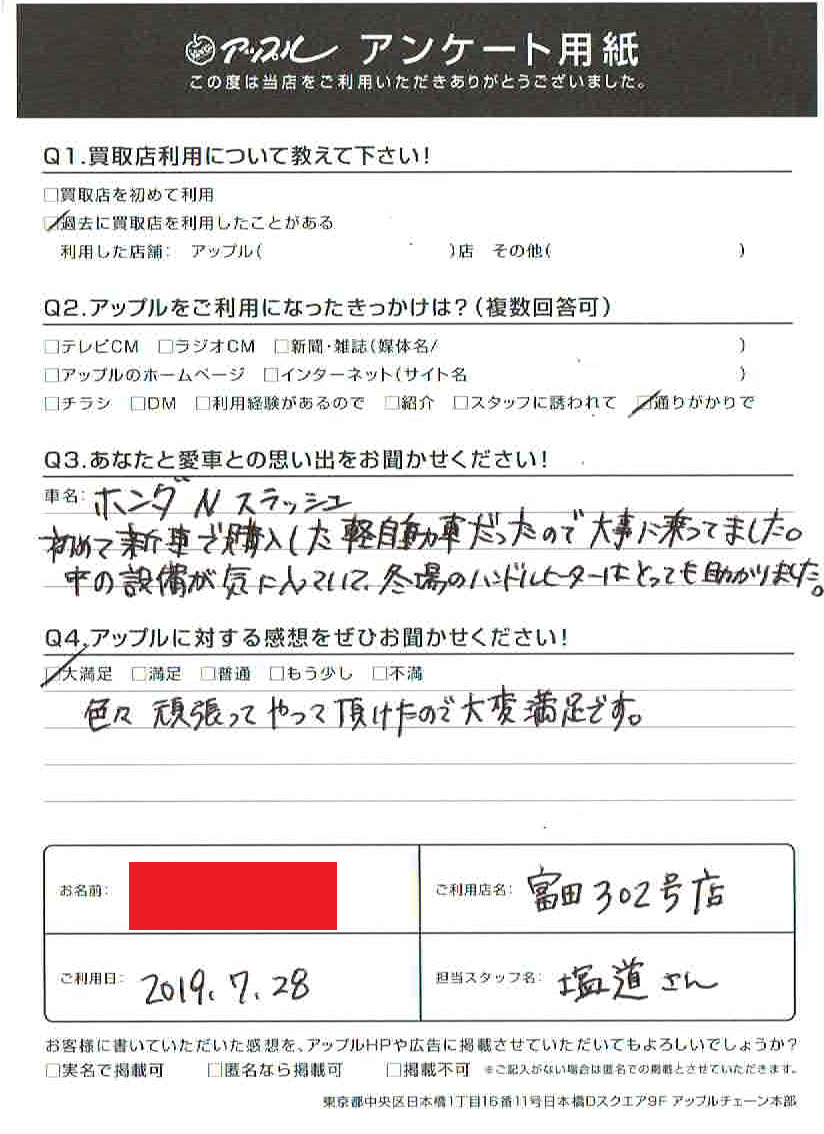 アップル アンケート用紙
この度は当店をご利用いただきありがとうございました。
Q1.買取店利用について教えて下さい!
□買取店を初めて利用
☑過去に買取店を利用したことがある
利用した店舗: アップル( )店 その他( )
Q2.アップルをご利用になったきっかけは?(複数回答可)
□テレビCM □ラジオCM □新聞・雑誌(媒体名/ )
□アップルのホームページ □インターネット(サイト名 )
□チラシ □DM □利用経験があるので □紹介 □スタッフに誘われて ☑通りがかりで
Q3.あなたと愛車との思い出をお聞かせください!
車名: ホンダ N スラッシュ
初めて新車で購入した軽自動車だったので大事に乗ってました。
中の設備が気に入っていて、冬場のハンドルヒーターはとっても助かりました。
Q4.アップルに対する感想をぜひお聞かせください!
☑大満足 □満足 □普通 □もう少し □不満
色々頑張ってやって頂けたので大変満足です。
お名前:
ご利用店名: 富田302号店
ご利用日: 2019.7.28
担当スタッフ名: 塩道さん
お客様に書いていただいた感想を、アップルHPや広告に掲載させていただいてもよろしいでしょうか?
□実名で掲載可 □匿名なら掲載可 □掲載不可 ※ご記入がない場合は匿名での掲載とさせていただきます。
東京都中央区日本橋1丁目16番11号日本橋Dスクエア9F アップルチェーン本部